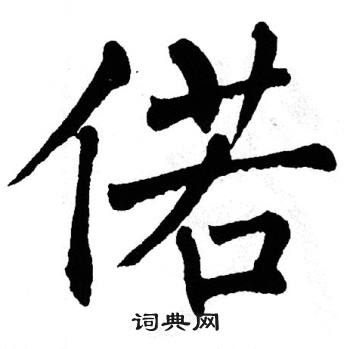 偌
词典网